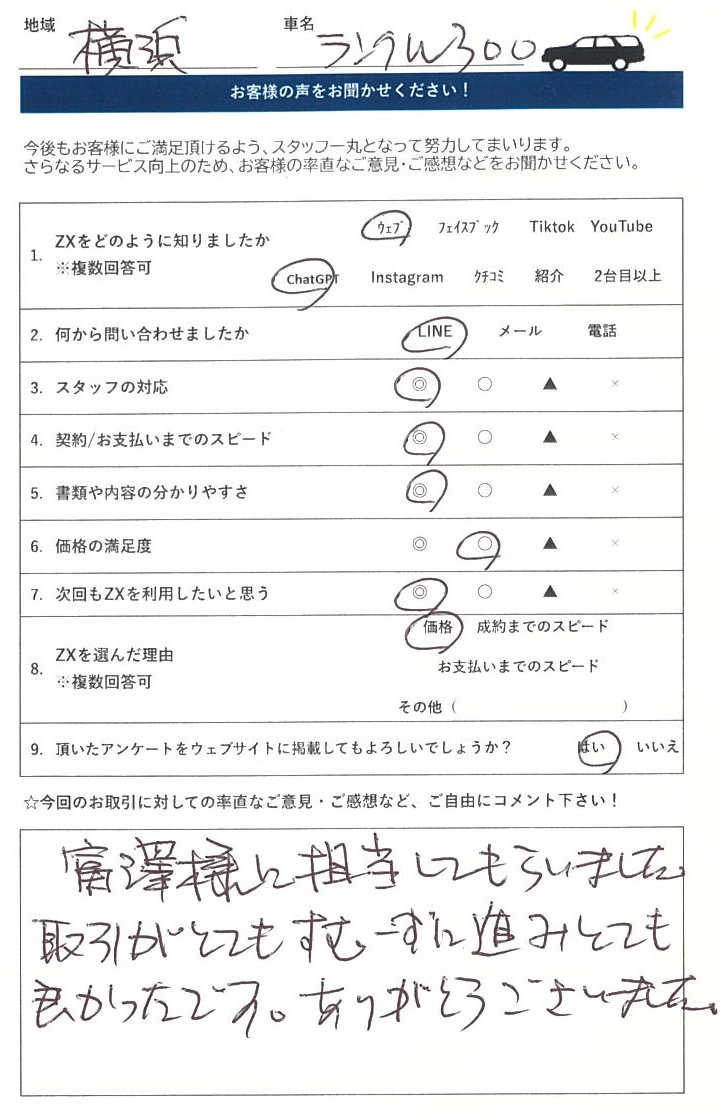 地域 横浜 車名 ランクル300
お客様の声をお聞かせください！
今後もお客様にご満足頂けるよう、スタッフ一丸となって努力してまいります。
さらなるサービス向上のため、お客様の率直なご意見・ご感想などをお聞かせください。
1. ZXをどのように知りましたか
※複数回答可
ウェブ フェイスブック Tiktok YouTube
ChatGPT Instagram クチコミ 紹介 2台目以上
2. 何から問い合わせましたか LINE メール 電話
3. スタッフの対応 ◎ ○ ▲ ×
4. 契約/お支払いまでのスピード ◎ ○ ▲ ×
5. 書類や内容の分かりやすさ ◎ ○ ▲ ×
6. 価格の満足度 ◎ ○ ▲ ×
7. 次回もZXを利用したいと思う ◎ ○ ▲ ×
8. ZXを選んだ理由
※複数回答可
価格 成約までのスピード
お支払いまでのスピード
その他（ ）
9. 頂いたアンケートをウェブサイトに掲載してもよろしいでしょうか？ はい いいえ
☆今回のお取引に対しての率直なご意見・ご感想など、ご自由にコメント下さい！
富澤様に担当してもらいました
取引がとてもすむーずに進みとても
良かったです。ありがとうございました。